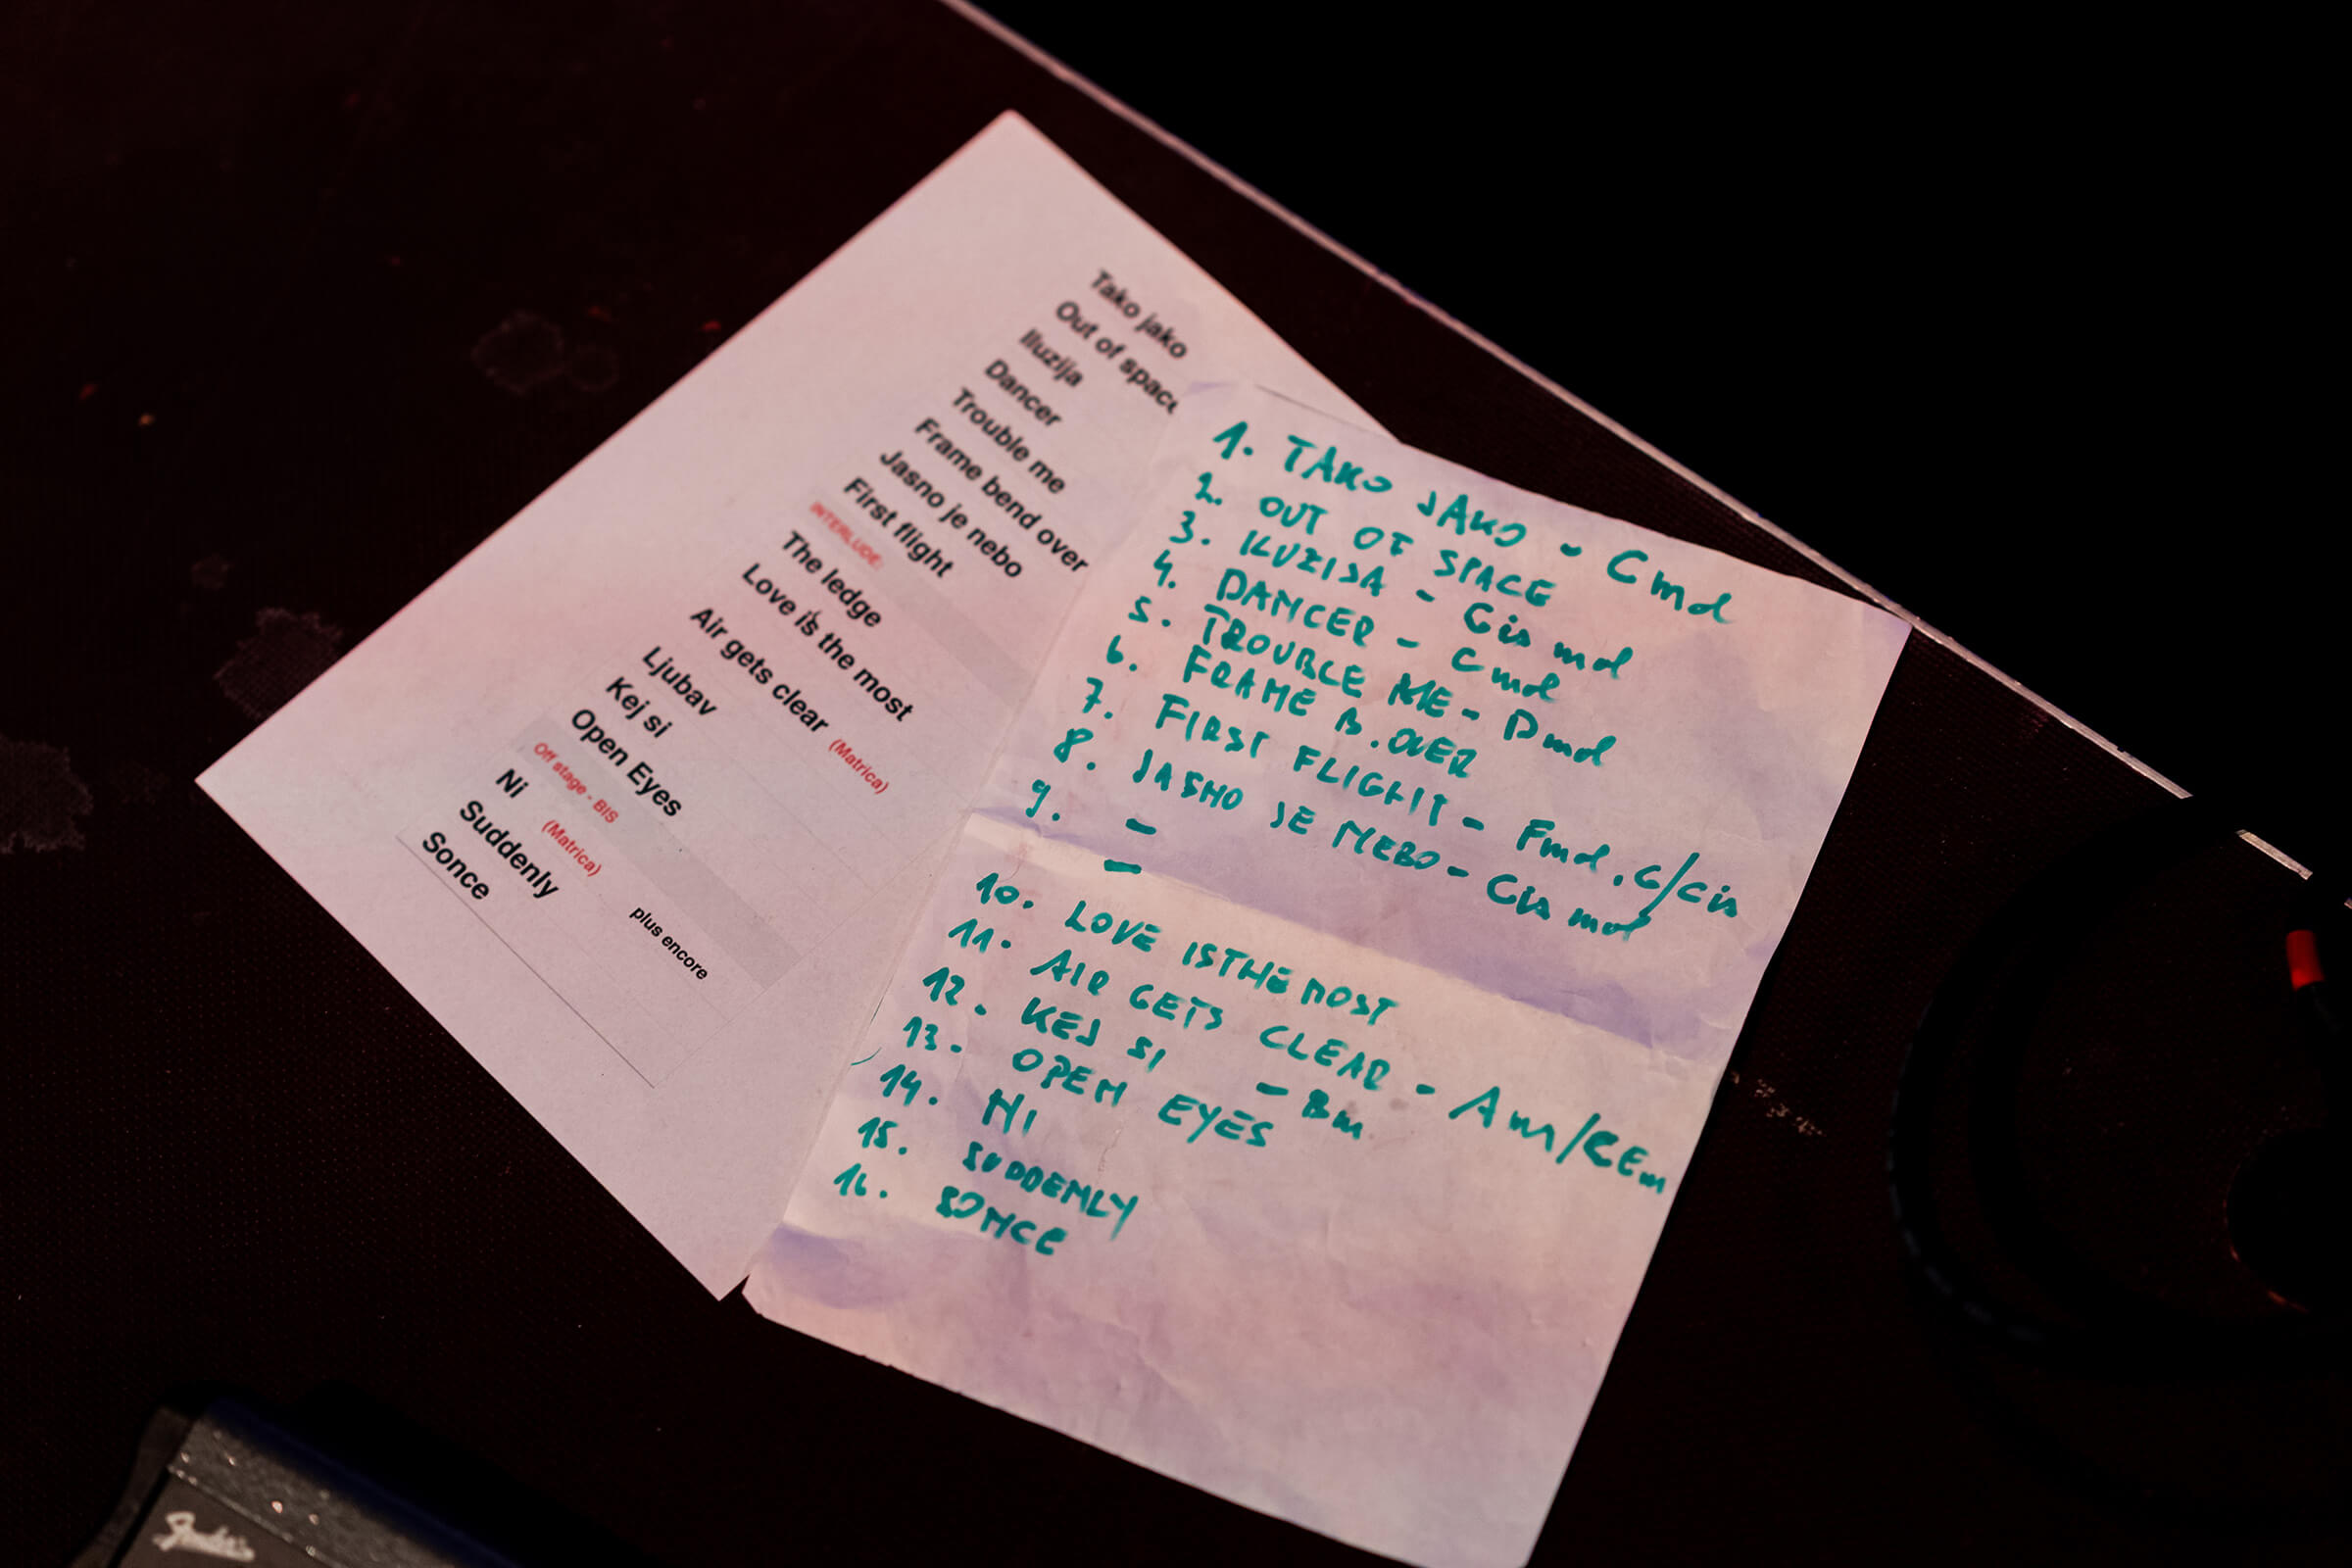 Tako jako
Out of space
Iluzija
Dancer
Trouble me
Frame bend over
Jasno je nebo
First flight
INTERLUDE:
The ledge
Love is the most
Air gets clear (Matrica)
Ljubav
Kej si
Open Eyes
Off stage - BIS
Ni (Matrica)
Suddenly
Sonce
plus encore
1. TAKO JAKO - Cmol
2. OUT OF SPACE
3. ILUZIJA - Cis mol
4. DANCER - Cmol
5. TROUBLE ME - Dmol
6. FRAME B. OVER
7. FIRST FLIGHT - Fmol, C/Cis
8. JASNO JE NEBO - Cis mol
9. -
-
10. LOVE IS THE MOST
11. AIR GETS CLEAR - Am/Em
12. KEJ SI - Bm
13. OPEN EYES
14. NI
15. SUDDENLY
16. SONCE
Fender